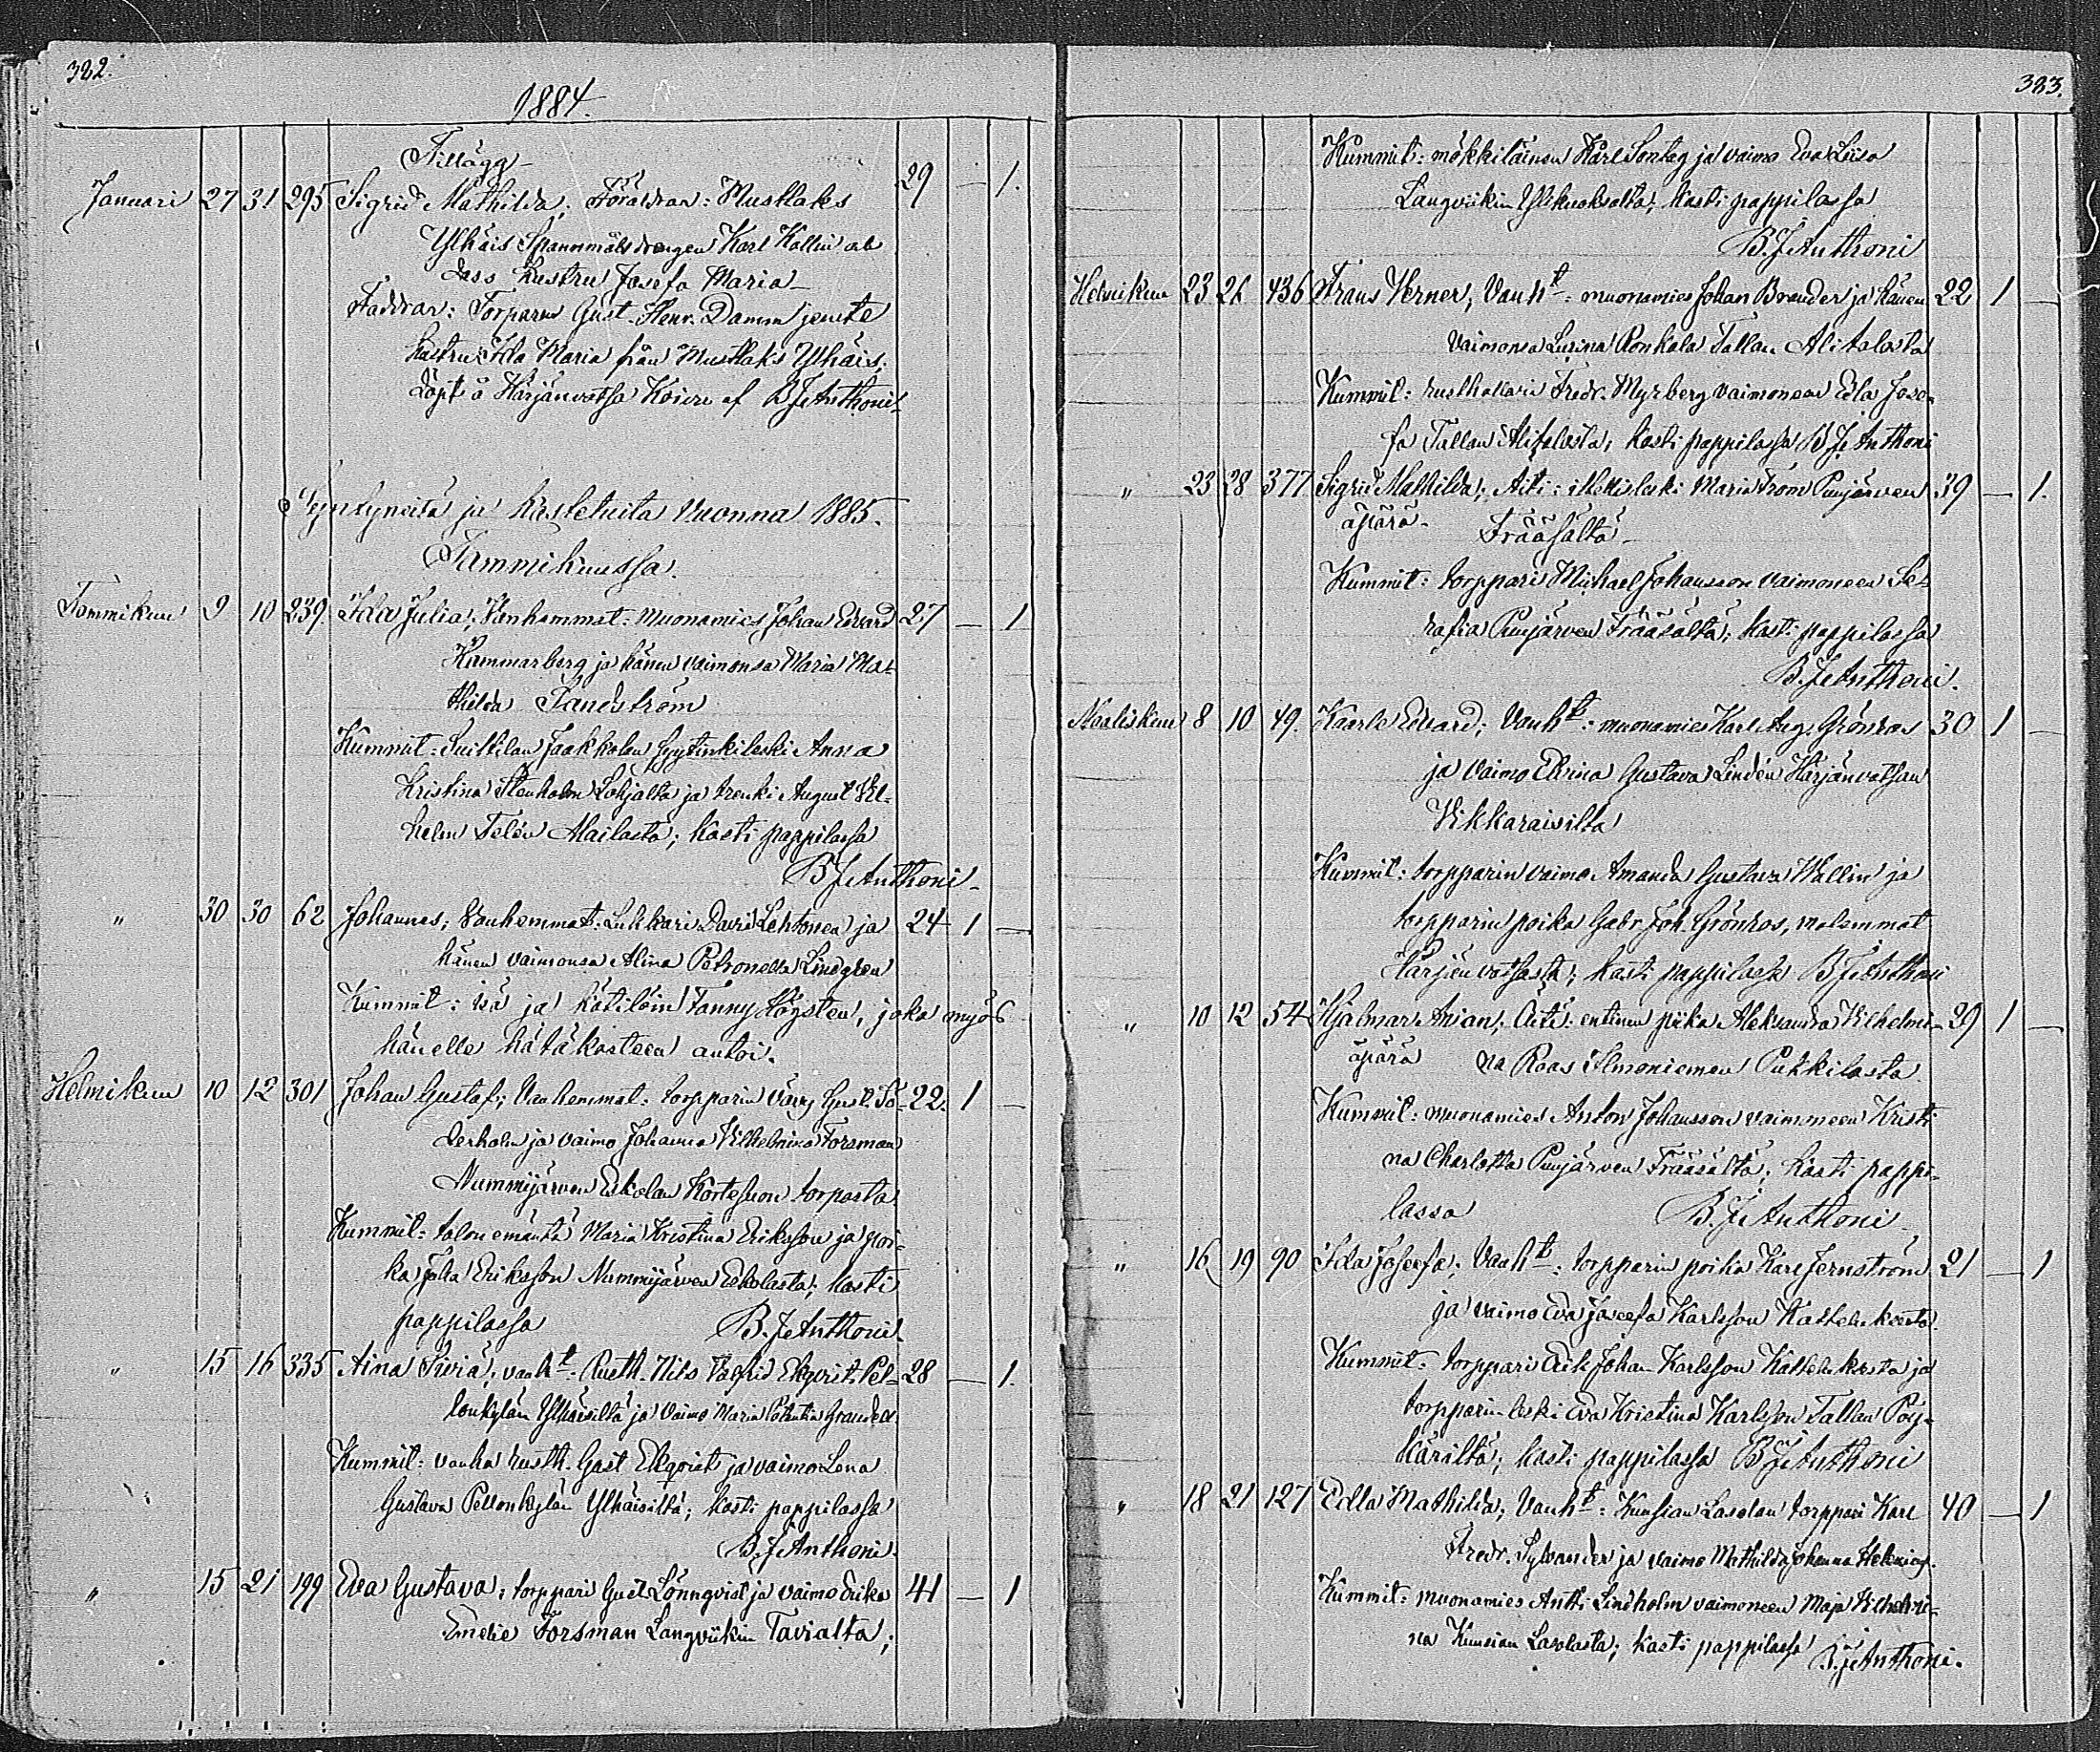 322.
1884.
Tillägg
Januari 27 31 295 Sigrid Mathilda; Föräldrar: Mustlaks 29 — 1.
Ylhäis Spannmålsdrengen Karl Kallin och
dess hustru Josefa Maria
Faddrar: Torparen Gust. Henr. Damm jemte
hustru Ida Maria från Mustlaks Ylhäis;
döpt å Härjänvatsa af B.F. Anthoni
Syntyneitä ja kastetuita vuonna 1885.
Tammikuussa.
Tammikuu 9 10 239. Ida Julia; Vanhemmat: muonamies Johan Edvard 27 — 1
Hammarberg ja hänen vaimonsa Maria Ma-
thilda Sandström
Kummit: Suittilan Jaakkolan Anna
Kristina Stenholm Lohjalta ja trenki August Vil-
helm Telén Mailasta; kasti pappilassa
B.F. Anthoni
" 30 30 62 Johannes; Vanhemmat: Lukkari David Lehtonen ja 24 1 —
hänen vaimonsa Alina Petronella Lindgren
Kummit: isä ja kätilöin Fanny Högsten, joka myös
hänelle hätäkasteen antoi.
Helmikuu 10 12 301 Johan Gustaf; Vanhemmat: torpparin vävy Gust. Sö- 22. 1 —
derholm ja vaimo Johanna Vilhelmina Forsman
Nummijärven Eskolan Kortesuon torpasta.
Kummit: talon emäntä Maria Kristina Eriksson ja poi-
ka Juha Eriksson Nummijärven Eskolasta; kasti
pappilassa B.F. Anthoni
" 15 16 335 Aina Siviä; vanht: Rusth. Nils Valfrid Ekqvist Pel- 28 — 1.
lonkylän Ylhäisiltä ja vaimo Maria Grandell
Kummit: vanha rusth. Gust Ekqvist ja vaimo Lena
Gustava Pellonkylän Ylhäisiltä; kasti pappilassa
B.F. Anthoni
" 15 21 199 Eva Gustava; torppari Gust Lönnqvist ja vaimo Erika 41 — 1
Emelie Forsman Langvikin Tavialta;
323.
Kummit: mökkiläinen Karl Sontag ja vaimo Eva Liisa
Langvikin Ylikuoksalta; kasti pappilassa
B.F. Anthoni
Helmikuu 23 26 436 Frans Verner; Vanht: muonamies Johan Brander ja hänen 22 1 —
vaimonsa Lusina Ronkala Tallan Alitalosta
Kummit: rusthollari Fredr. Myrberg vaimoneen Edla Jose-
fa Tallan Alitalosta; kasti pappilassa B.F. Anthoni
" 23 28 377 Sigrid Mathilda; Äiti: itsellisleski Maria Fröm Puujärven 39 — 1.
äpärä. Frääsältä
Kummit: torppari Michael Johansson vaimoneen Se-
rafia Puujärven Frääsältä; kasti pappilassa
B.F. Anthoni.
Maaliskuu 8 10 49. Kaarle Edvard; Vanht: muonamies Karl Aug. Grönroos 30 1 —
ja vaimo Edvina Gustava Lindén Härjänvatsan
Vikkaraisilta
Kummit: torpparin vaimo Amanda Gustava Wallin ja
torpparin poika Gabr. Joh. Grönroos, molemmat
Härjänvatsasta; kasti pappilassa B.F. Anthoni
" 10 12 54 Hjalmar Arvian; Äiti: entinen piika Aleksandra Vilhelmi- 29 1 —
äpärä na Roos Ilmoniemen Pukkilasta.
Kummit: muonamies Anton Johansson vaimoneen Kristi
na Charlotta Puujärven Frääsältä; kasti pappi-
lassa B.F. Anthoni
" 16 19 90 Ida Josefa; Vanht: torpparin poika Karl Jernström 21 — 1
ja vaimo Eva Josefa Karlsson
Kummit: torppari Erik Johan Karlsson ja
torpparin leski Eva Kristina Karlsson Tallan Pöy-
täriltä; kasti pappilassa B.F. Anthoni
" 18 21 127 Edla Mathilda; Vanht: Kuusian Lasolan torppari Karl 40 — 1
Fredr. Sylvander ja vaimo Mathilda Johanna Helenius.
Kummit: muonamies Antti Lindholm vaimoneen Maja Vilhelmi-
na Kuusian Lasolasta; kasti pappilassa B.F. Anthoni.